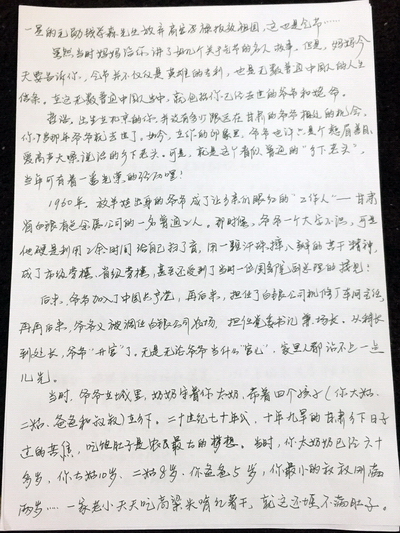 是的无助钱学森先生放弃高官厚禄报效祖国,这也是气节……
虽然当时妈妈给你讲了好几个关于气节的名人故事。但是,妈妈今
天要告诉你,气节并不仅仅是英雄的专利,也是无数普通中国人的人生
信条。在这无数普通中国人当中,就包括你已经去世的爷爷和姥爷。
首治,出生在北京的你,并没有多少跟远在甘肃的爷爷相处的机会。
你7岁那年爷爷就去世了。如今,在你的印象里,爷爷也许只是个
爱高声大嗓说话的乡下老头。可是,就是这个看似普通的“乡下老头”,
当年可有着一番光荣的经历呢!
1960年,放羊娃出身的爷爷成了让乡亲们眼红的“工作人”——甘肃
省白银有色金属公司的一名普通工人。那时候,爷爷一个大字不识,可是
他硬是利用工余时间给自己扫了盲,用一颗汗珠摔八瓣的苦干精神,
成了市级劳模、省级劳模,甚至还受到了当时一位国务院副总理的接见!
后来,爷爷加入了中国共产党,再后来,担任了白银公司机修厂车间主任,
再再后来,爷爷又被调任白银公司农场,担任党委书记兼场长。从科长
到处长,爷爷“升官”了。无奈无论爷爷当什么“官”,家里人都沾不上一点
儿光。
当时,爷爷在城里,奶奶守着你太奶、带着四个孩子(你大姑、
二姑、爸爸和叔叔)在乡下。二十世纪七十年代,十年九旱的甘肃乡下日子
过的苦焦,吃饱肚子是农民最大的梦想。当时,你太奶奶已经六十
多岁,你大姑10岁、二姑8岁、你爸爸5岁,你最小的叔叔刚满
两岁……一家老小天天吃高粱米啃红薯干,就这还填不满肚子。